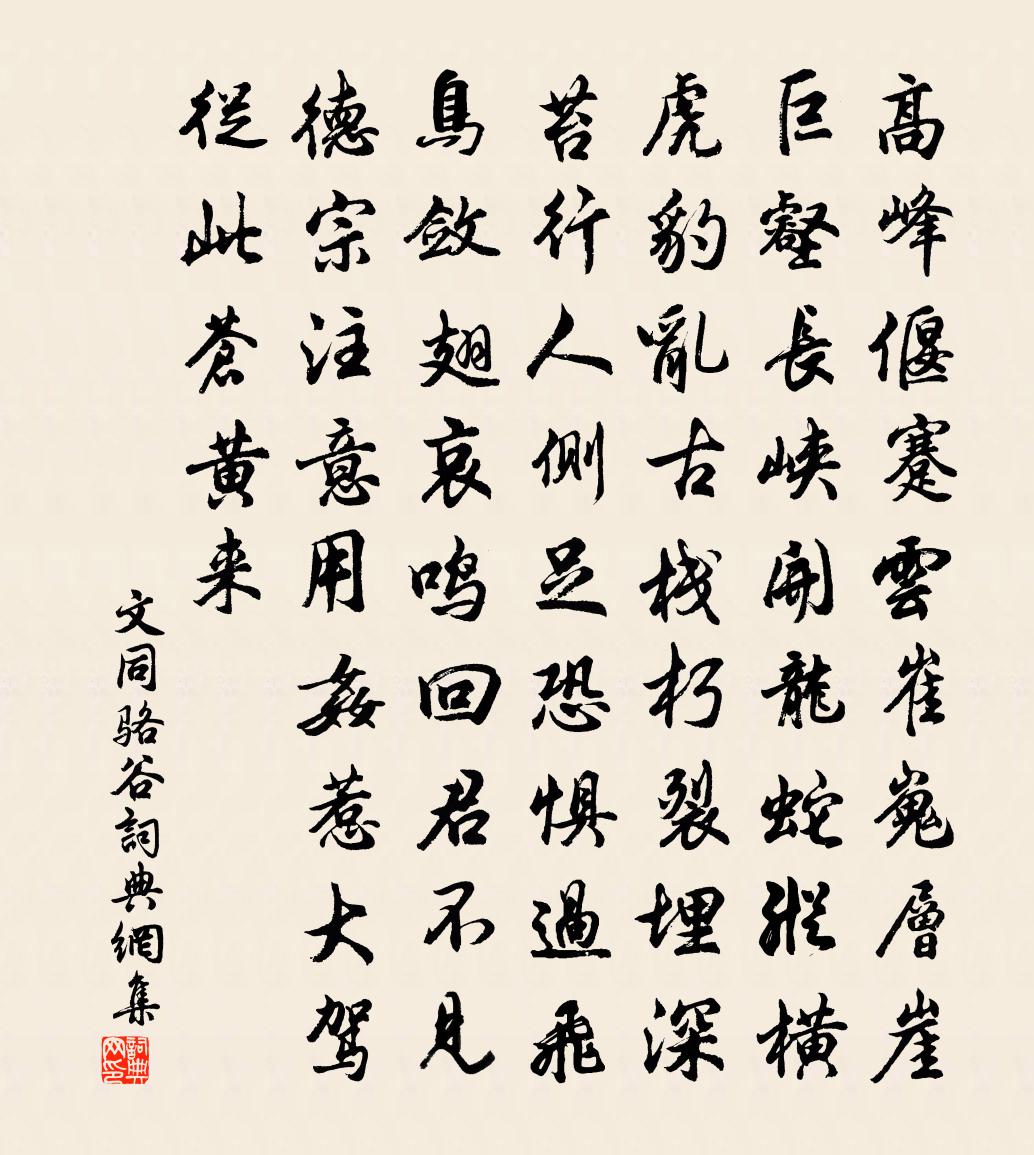 高峰偃蹇雲崔嵬層崖
巨壑長峽開龍蛇縱橫
虎豹亂古棧朽裂埋深
苔行人側足恐懼過飛
鳥斂翅哀鳴回君不見
德宗注意用姦惹大駕
從此蒼黃来
文同骆谷詞典網集
詞典网印